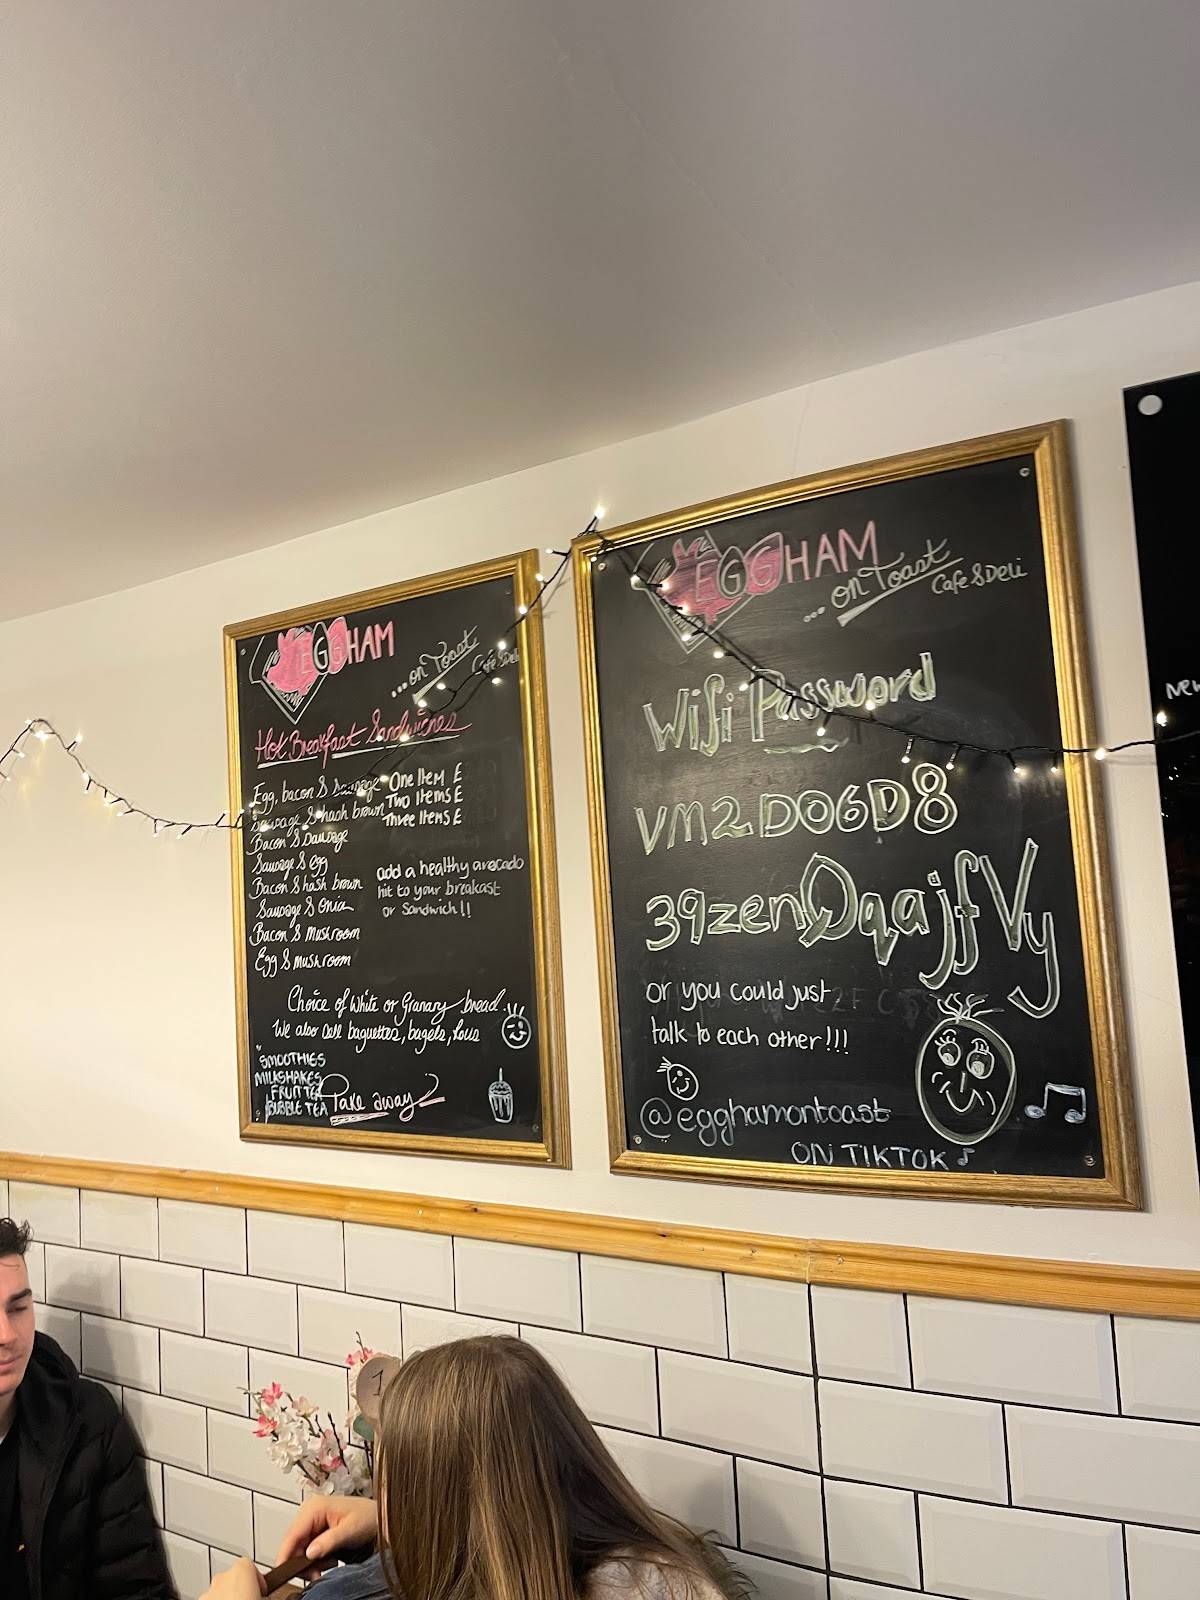 EGGHAM
...on Toast
Cafe & Deli
Hot Breakfast Sandwiches
Egg, bacon & Sausage
Sausage & hash brown
Bacon & Sausage
Sausage & egg
Bacon & hash brown
Sausage & Onion
Bacon & Mushroom
Egg & mushroom
One Item £
Two Items £
Three Items £
add a healthy avocado
hit to your breakast
or Sandwich!!
Choice of White or Granary bread.
We also sell baguettes, bagels,
SMOOTHIES
MILKSHAKES
FRUIT TEA
BUBBLE TEA
Take away
EGGHAM
...on Toast
Cafe & Deli
Wifi Password
VM2DO6D8
39zenDqajfVy
or you could just
talk to each other!!!
@egghamontoast
ON TIKTOK
New
1